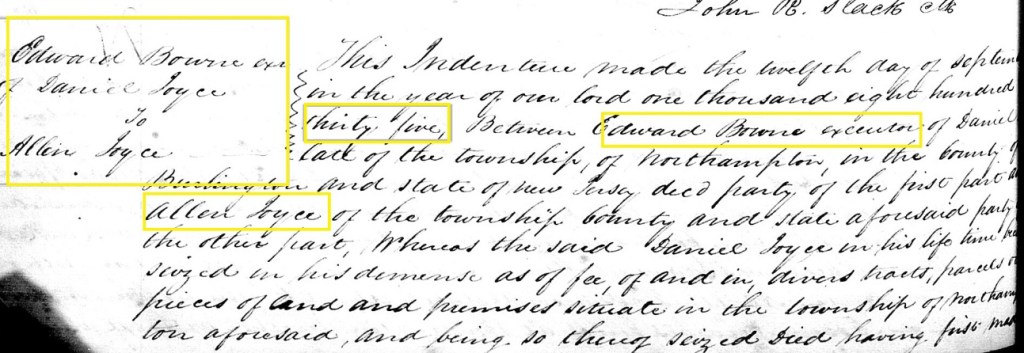 John R. Slack Clk
Edward Bowne exr
of Daniel Joyce
To
Allen Joyce
This Indenture made the twelfth day of septem
in the year of our lord one thousand eight hundred
thirty five, Between Edward Bowne executor of Daniel
late of the township, of Northampton, in the county of
Burlington and state of new Jersey decd party of the first part a
Allen Joyce of the township County and state aforesaid party
the other part, Whereas the said Daniel Joyce in his life time
seized in his demense as of fee, of and in, divers tracts, parcels o
pieces of land and premises situate in the township of Northamp
ton aforesaid, and being so thereof seized Died having first ma